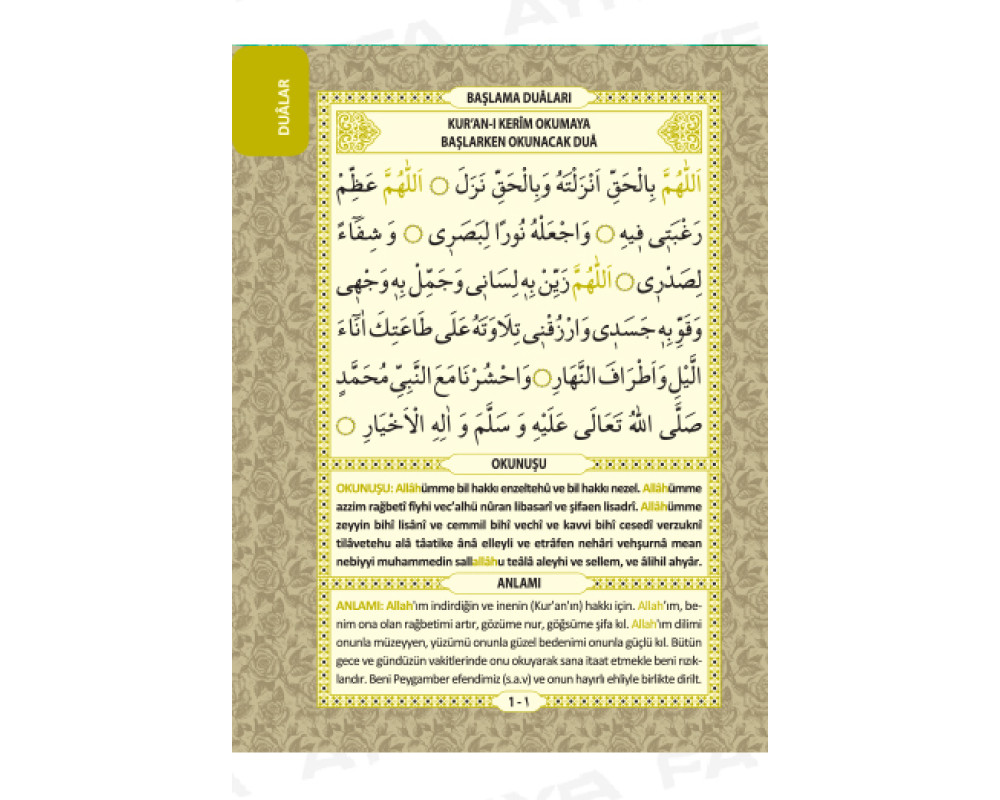 DUÂLAR
BAŞLAMA DUÂLARI
KUR’AN-I KERÎM OKUMAYA
BAŞLARKEN OKUNACAK DUÂ
اَللّٰهُمَّ بِالْحَقِّ اَنْزَلْتَهُ وَبِالْحَقِّ نَزَلَ ۝ اَللّٰهُمَّ عَظِّمْ
رَغْبَتٖى فٖيهِ ۝ وَاجْعَلْهُ نُورًا لِبَصَرٖى ۝ وَ شِفَٓاءً
لِصَدْرٖى ۝ اَللّٰهُمَّ زَيِّنْ بِهٖ لِسَانٖى وَجَمِّلْ بِهٖ وَجْهٖى
وَقَوِّ بِهٖ جَسَدٖى وَارْزُقْنٖى تِلَاوَتَهُ عَلَى طَاعَتِكَ اٰنَٓاءَ
الَّيْلِ وَاَطْرَافَ النَّهَارِ ۝ وَاحْشُرْنَا مَعَ النَّبِيِّ مُحَمَّدٍ
صَلَّى اللّٰهُ تَعَالَى عَلَيْهِ وَ سَلَّمَ وَ اٰلِهِ الْاَخْيَارِ ۝
OKUNUŞU
OKUNUŞU: Allâhümme bil hakkı enzeltehû ve bil hakkı nezel. Allâhümme
azzim rağbetî fîyhi vec’alhü nûran libasarî ve şifaen lisadrî. Allâhümme
zeyyin bihî lisânî ve cemmil bihî vechî ve kavvi bihî cesedî verzuknî
tilâvetehu alâ tâatike ânâ elleyli ve etrâfen nehâri vehşurnâ mean
nebiyyi muhammedin sallallâhu teâlâ aleyhi ve sellem, ve âlihil ahyâr.
ANLAMI
ANLAMI: Allah'ım indirdiğin ve inenin (Kur'an'ın) hakkı için. Allah’ım, be-
nim ona olan rağbetimi artır, gözüme nur, göğsüme şifa kıl. Allah'ım dilimi
onunla müzeyyen, yüzümü onunla güzel bedenimi onunla güçlü kıl. Bütün
gece ve gündüzün vakitlerinde onu okuyarak sana itaat etmekle beni rızık-
landır. Beni Peygamber efendimiz (s.a.v) ve onun hayırlı ehliyle birlikte dirilt.
1 - ١